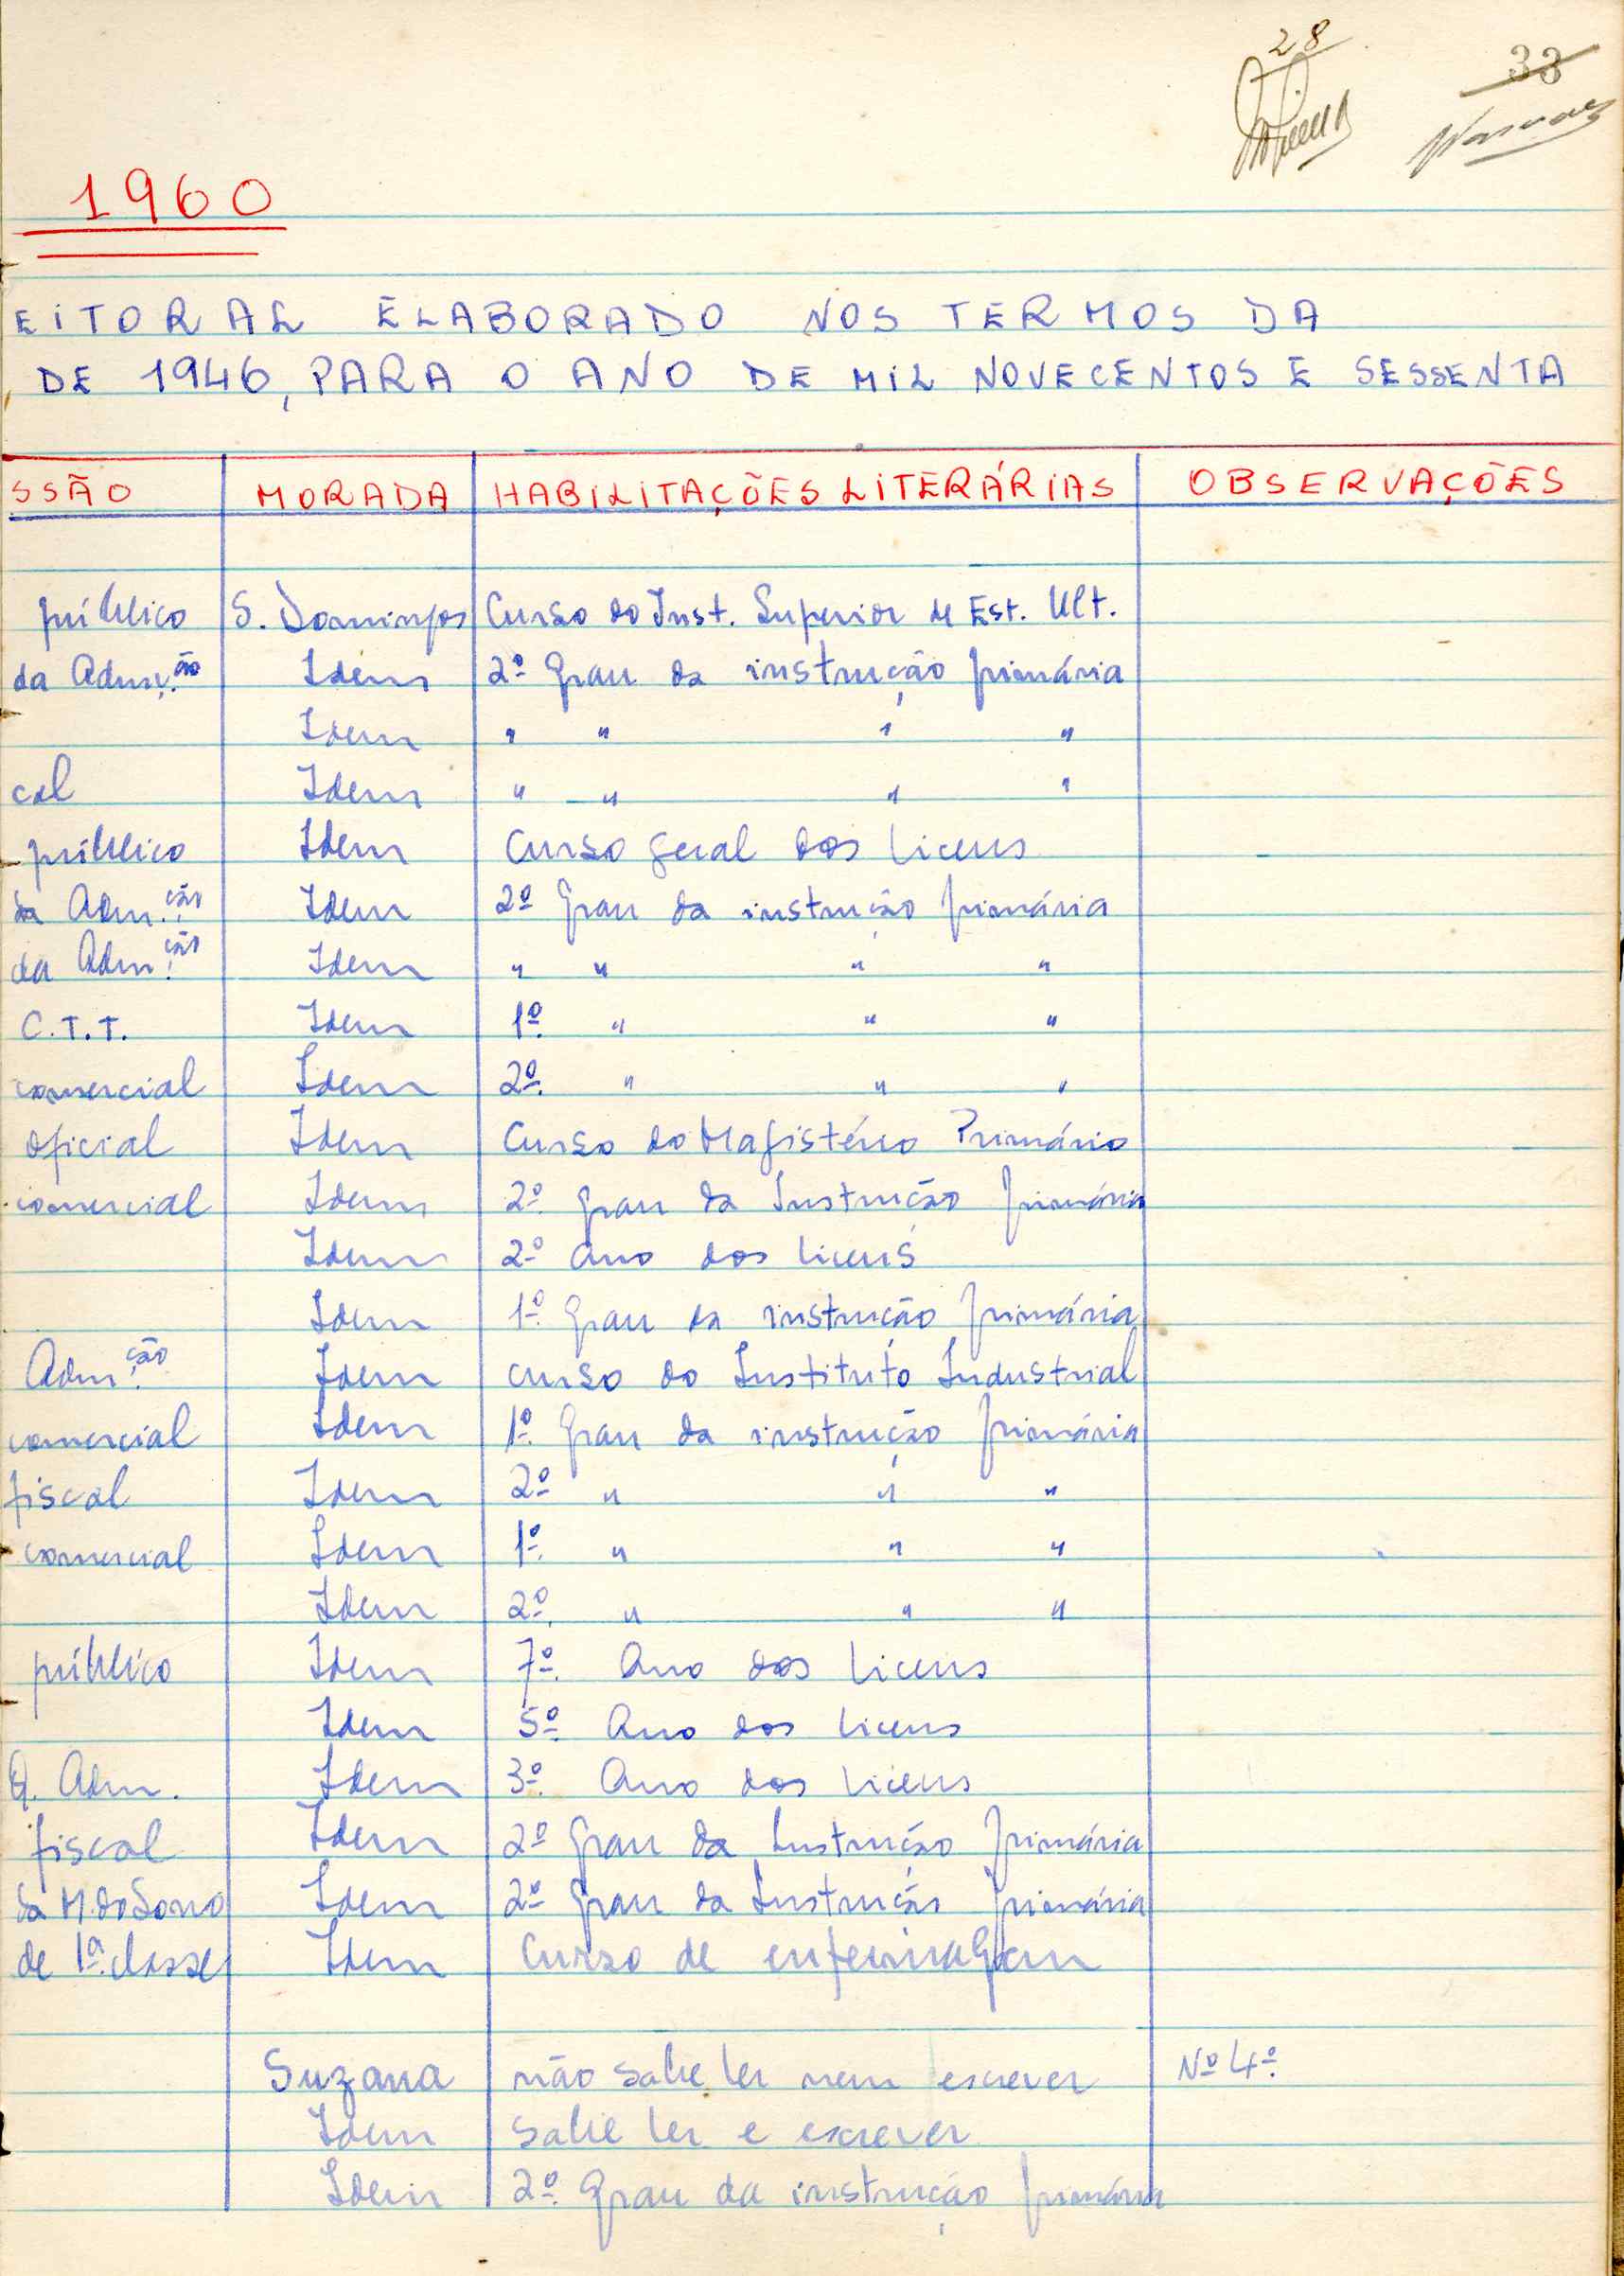 28
33
1960
EITORAL ELABORADO NOS TERMOS DA
DE 1946, PARA O ANO DE MIL NOVECENTOS E SESSENTA
SSÃO MORADA HABILITAÇÕES LITERÁRIAS OBSERVAÇÕES
público S. Domingos Curso do Inst. Superior de Est. Ult.
da Adm.ção Idem 2º Grau da instrução primária
Idem " " " "
cal Idem " " " "
público Idem Curso geral dos liceus
da Adm.ção Idem 2º Grau da instrução primária
da Adm.ção Idem " " " "
C.T.T. Idem 1º " " "
comercial Idem 2º " " "
oficial Idem Curso do Magistério Primário
comercial Idem 2º grau da Instrução primária
Idem 2º ano dos liceus
Idem 1º Grau da instrução primária
Adm.ção Idem curso do Instituto Industrial
comercial Idem 1º Grau da instrução primária
fiscal Idem 2º " " "
comercial Idem 1º " " "
Idem 2º " " "
público Idem 7º Ano dos liceus
Idem 5º Ano dos liceus
Q. Adm. Idem 3º Ano dos liceus
fiscal Idem 2º Grau da Instrução primária
da M. do Sono Idem 2º Grau da Instrução primária
de 1ª classe Idem Curso de enfermagem
Suzana não sabe ler nem escrever Nº 4º
Idem sabe ler e escrever
Idem 2º Grau da instrução primária